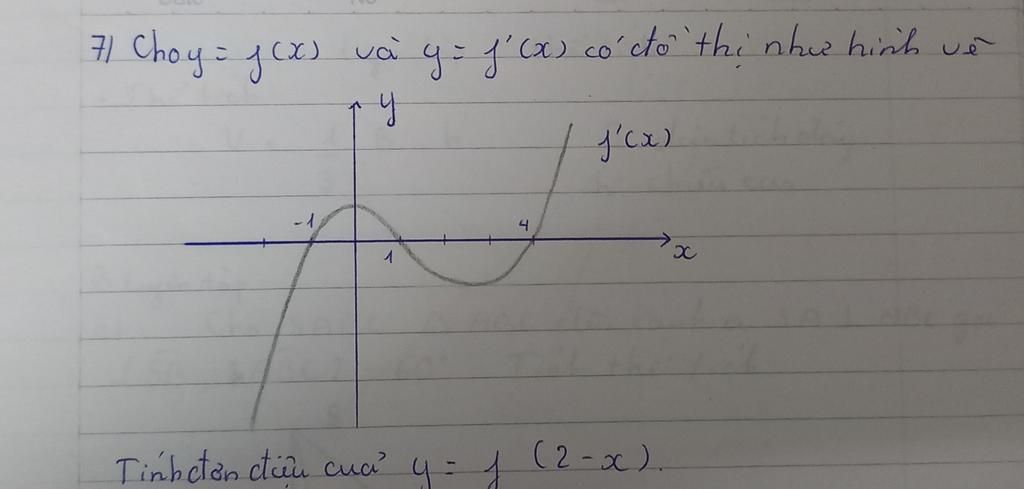 7) Cho y = f(x) và y = f'(x) có đồ thị như hình vẽ
y
f'(x)
-1
4
1
x
Tính đơn điệu của y = f (2-x).